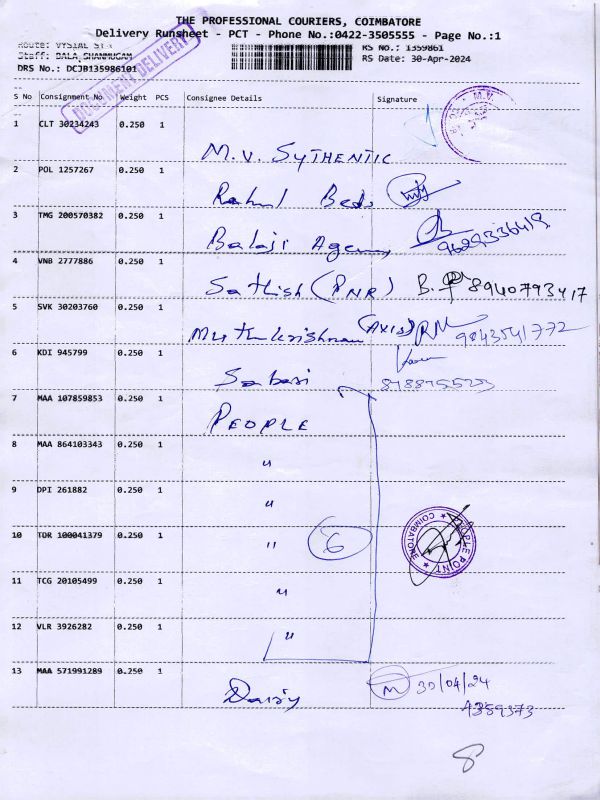 THE PROFESSIONAL COURIERS, COIMBATORE
Delivery Runsheet - PCT - Phone No.:0422-3505555 - Page No.:1
Route: VYSIAL ST RS No.: 1359861
Staff: BALA SHANMUGAM RS Date: 30-Apr-2024
DRS No.: DCJB135986101
DOCUMENT DELIVERY
S No Consignment No Weight PCS Consignee Details Signature
1 CLT 30234243 0.250 1 M.V. SYTHENTIC
M.V.
2 POL 1257267 0.250 1 Rahul Beds
3 TMG 200570382 0.250 1 Balaji Agency 9629336419
4 VNB 2777886 0.250 1 Sathish (PNR) B. 8940793417
5 SVK 30203760 0.250 1 Muthukrishnan (AXIS) RM 9043541772
6 KDI 945799 0.250 1 Sabari
7 MAA 107859853 0.250 1 PEOPLE
8 MAA 864103343 0.250 1 "
9 DPI 261882 0.250 1 "
10 TOR 100041379 0.250 1 " 6
PEOPLE POINT ★ COIMBATORE ★
11 TCG 20105499 0.250 1 "
12 VLR 3926282 0.250 1 "
13 MAA 571991289 0.250 1 Daisy M 30/04/24
A359373
8